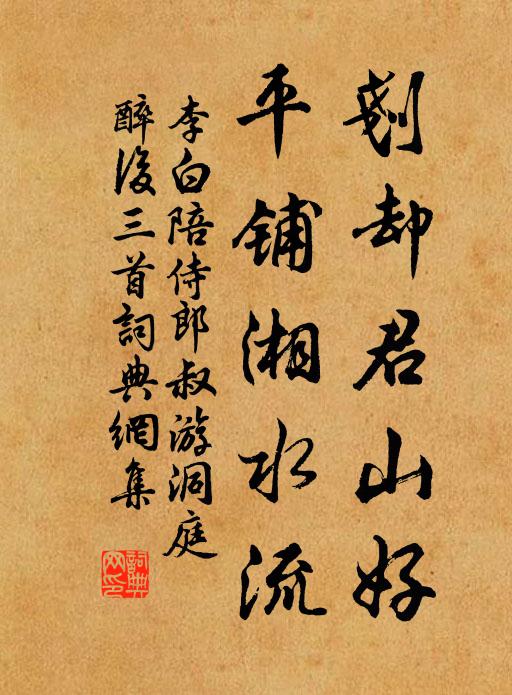 剗却君山好
平铺湘水流
李白陪侍郎叔游洞庭
醉後三首詞典網集
詞典網印